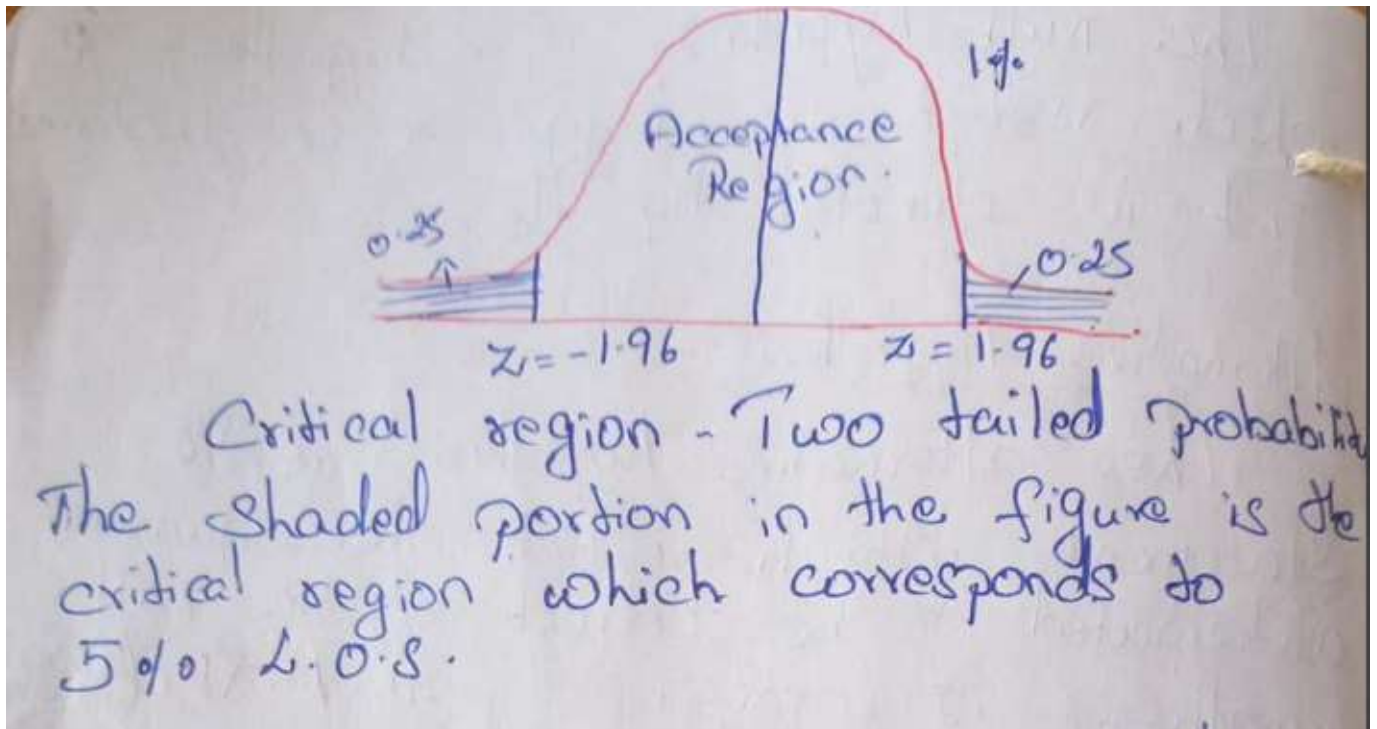 1%
Acceptance
Region.
0.25
0.25
Z = -1.96
Z = 1.96
Critical region - Two tailed
The shaded portion in the figure is the
critical region which corresponds to
5% L.O.S.